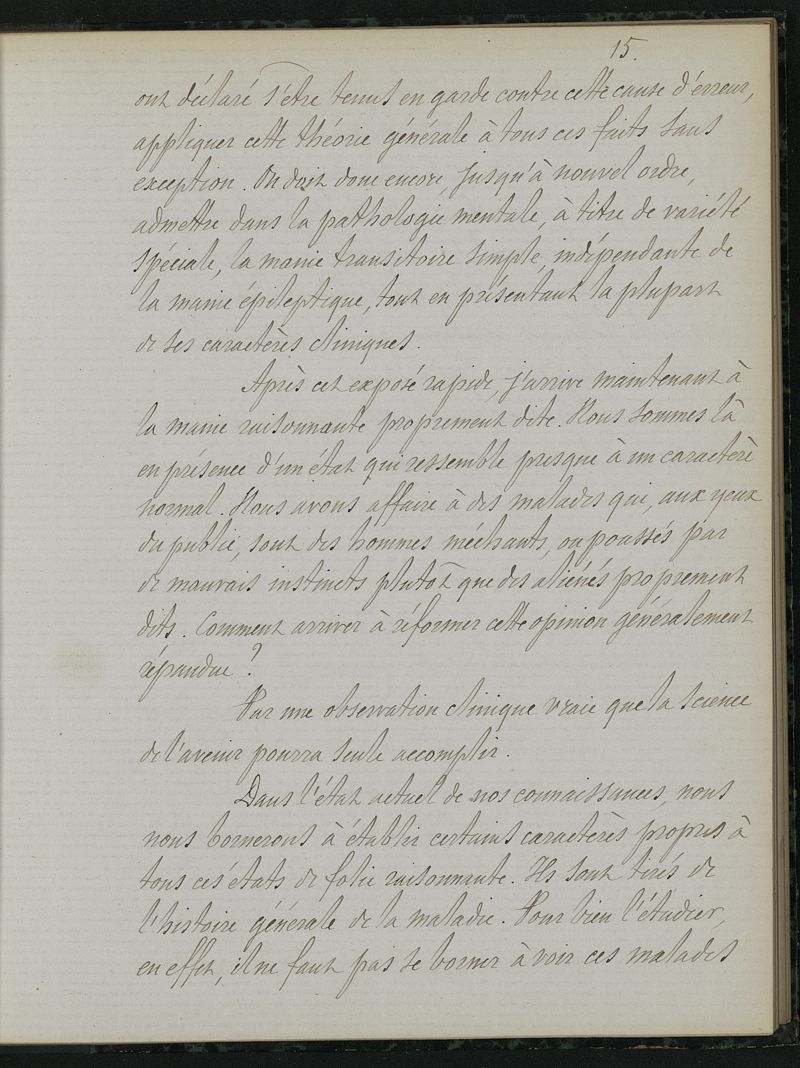 15.
ont déclaré s'être tenus en garde contre cette cause d'erreur,
appliquer cette théorie générale à tous ces faits sans
exception. On doit donc encore, jusqu'à nouvel ordre,
admettre dans la pathologie mentale, à titre de variété
spéciale, la manie transitoire simple, indépendante de
la manie épileptique, tout en présentant la plupart
de ses caractères cliniques.
Après cet exposé rapide, j'arrive maintenant à
la manie raisonnante proprement dite. Nous sommes là
en présence d'un état qui ressemble presque à un caractère
normal. Nous avons affaire à des malades qui, aux yeux
du public, sont des hommes méchants, ou poussés par
de mauvais instincts plutôt que des aliénés proprement
dits. Comment arriver à réformer cette opinion généralement
répandue ?
Par une observation clinique vraie que la science
de l'avenir pourra seule accomplir.
Dans l'état actuel de nos connaissances, nous
nous bornerons à établir certains caractères propres à
tous ces états de folie raisonnante. Ils sont tirés de
l'histoire générale de la maladie. Pour bien l'étudier,
en effet, il ne faut pas se borner à voir ces malades